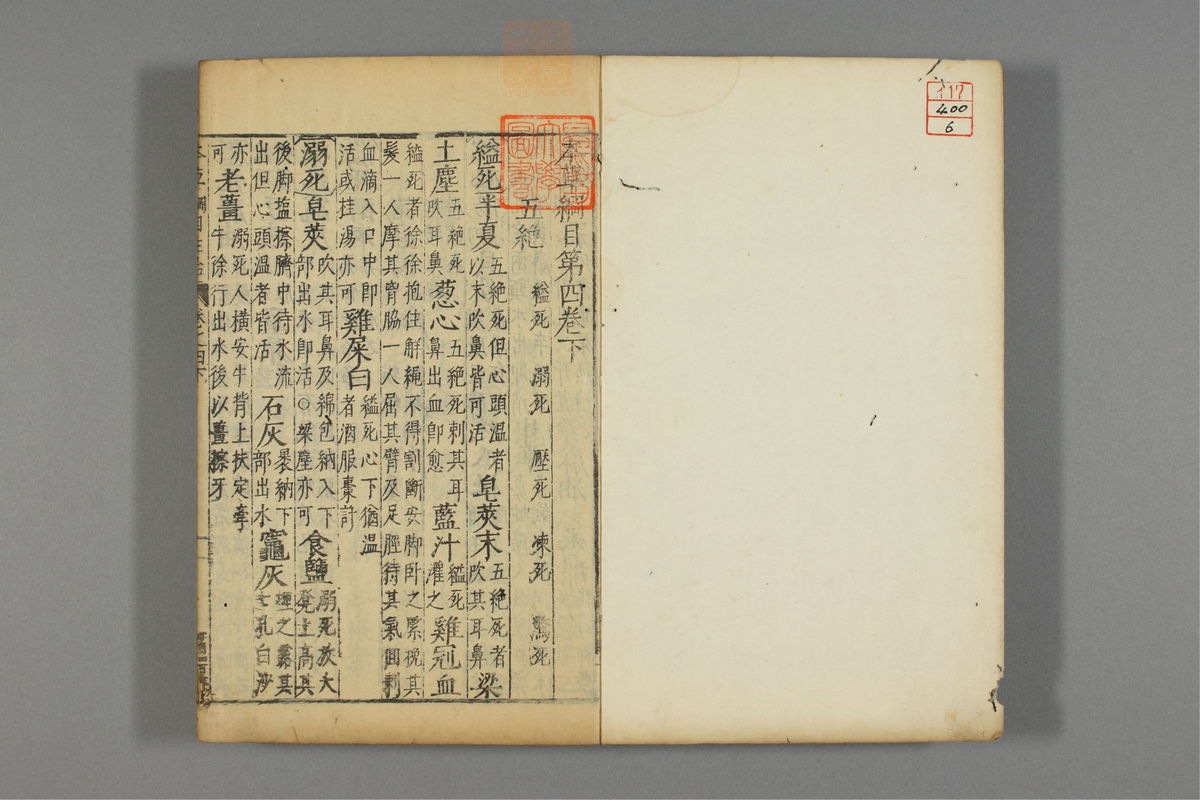 イ17
400
6
本草綱目第四卷下
五絕 縊死 溺死 壓死 凍死 驚死
縊死半夏五絕死但心頭溫者以末吹鼻皆可活皂莢末五絕死者吹其耳鼻梁
上塵五絕死吹耳鼻葱心五絕死刺其耳鼻出血卽愈藍汁縊死灌之雞冠血
縊死者徐徐抱住解繩不得割斷安脚卧之緊挽其髮一人摩其胷脇一人屈其臂及足脛待其氣囘刺
血滴入口中卽活或桂湯亦可雞屎白縊死心下猶溫者酒服棗許
溺死皂莢吹其耳鼻及綿包納入下部出水卽活○梁塵亦可食鹽溺死放大凳上高其
後脚鹽擦臍中待水流出但心頭溫者皆活石灰褁納下部出水竈灰埋之露其七孔白沙
亦可老薑溺死人橫安牛背上扶定牽牛徐行出水後以薑擦牙